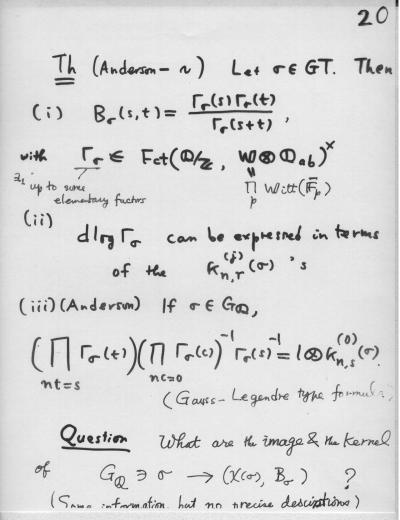 20
Th (Anderson - ~) Let σ ∈ GT. Then
(i) B_σ(s,t) = Γ_σ(s)Γ_σ(t) / Γ_σ(s+t),
with Γ_σ ∈ Fct(ℚ/ℤ, W⊗ℚ_ab)^×
∃1 up to some elementary factors
∏_p Witt(F̄_p)
(ii)
dlog Γ_σ can be expressed in terms
of the κ_{n,r}^{(j)}(σ)'s
(iii) (Anderson) If σ ∈ G_ℚ,
(∏_{nt=s} Γ_σ(t)) (∏_{nc=0} Γ_σ(c))^{-1} Γ_σ(s)^{-1} = 1⊗κ_{n,s}^{(0)}(σ).
(Gauss-Legendre type formula)
Question What are the image & the kernel
of G_ℚ ∋ σ → (χ(σ), B_σ) ?
(Some information, but no precise descriptions)